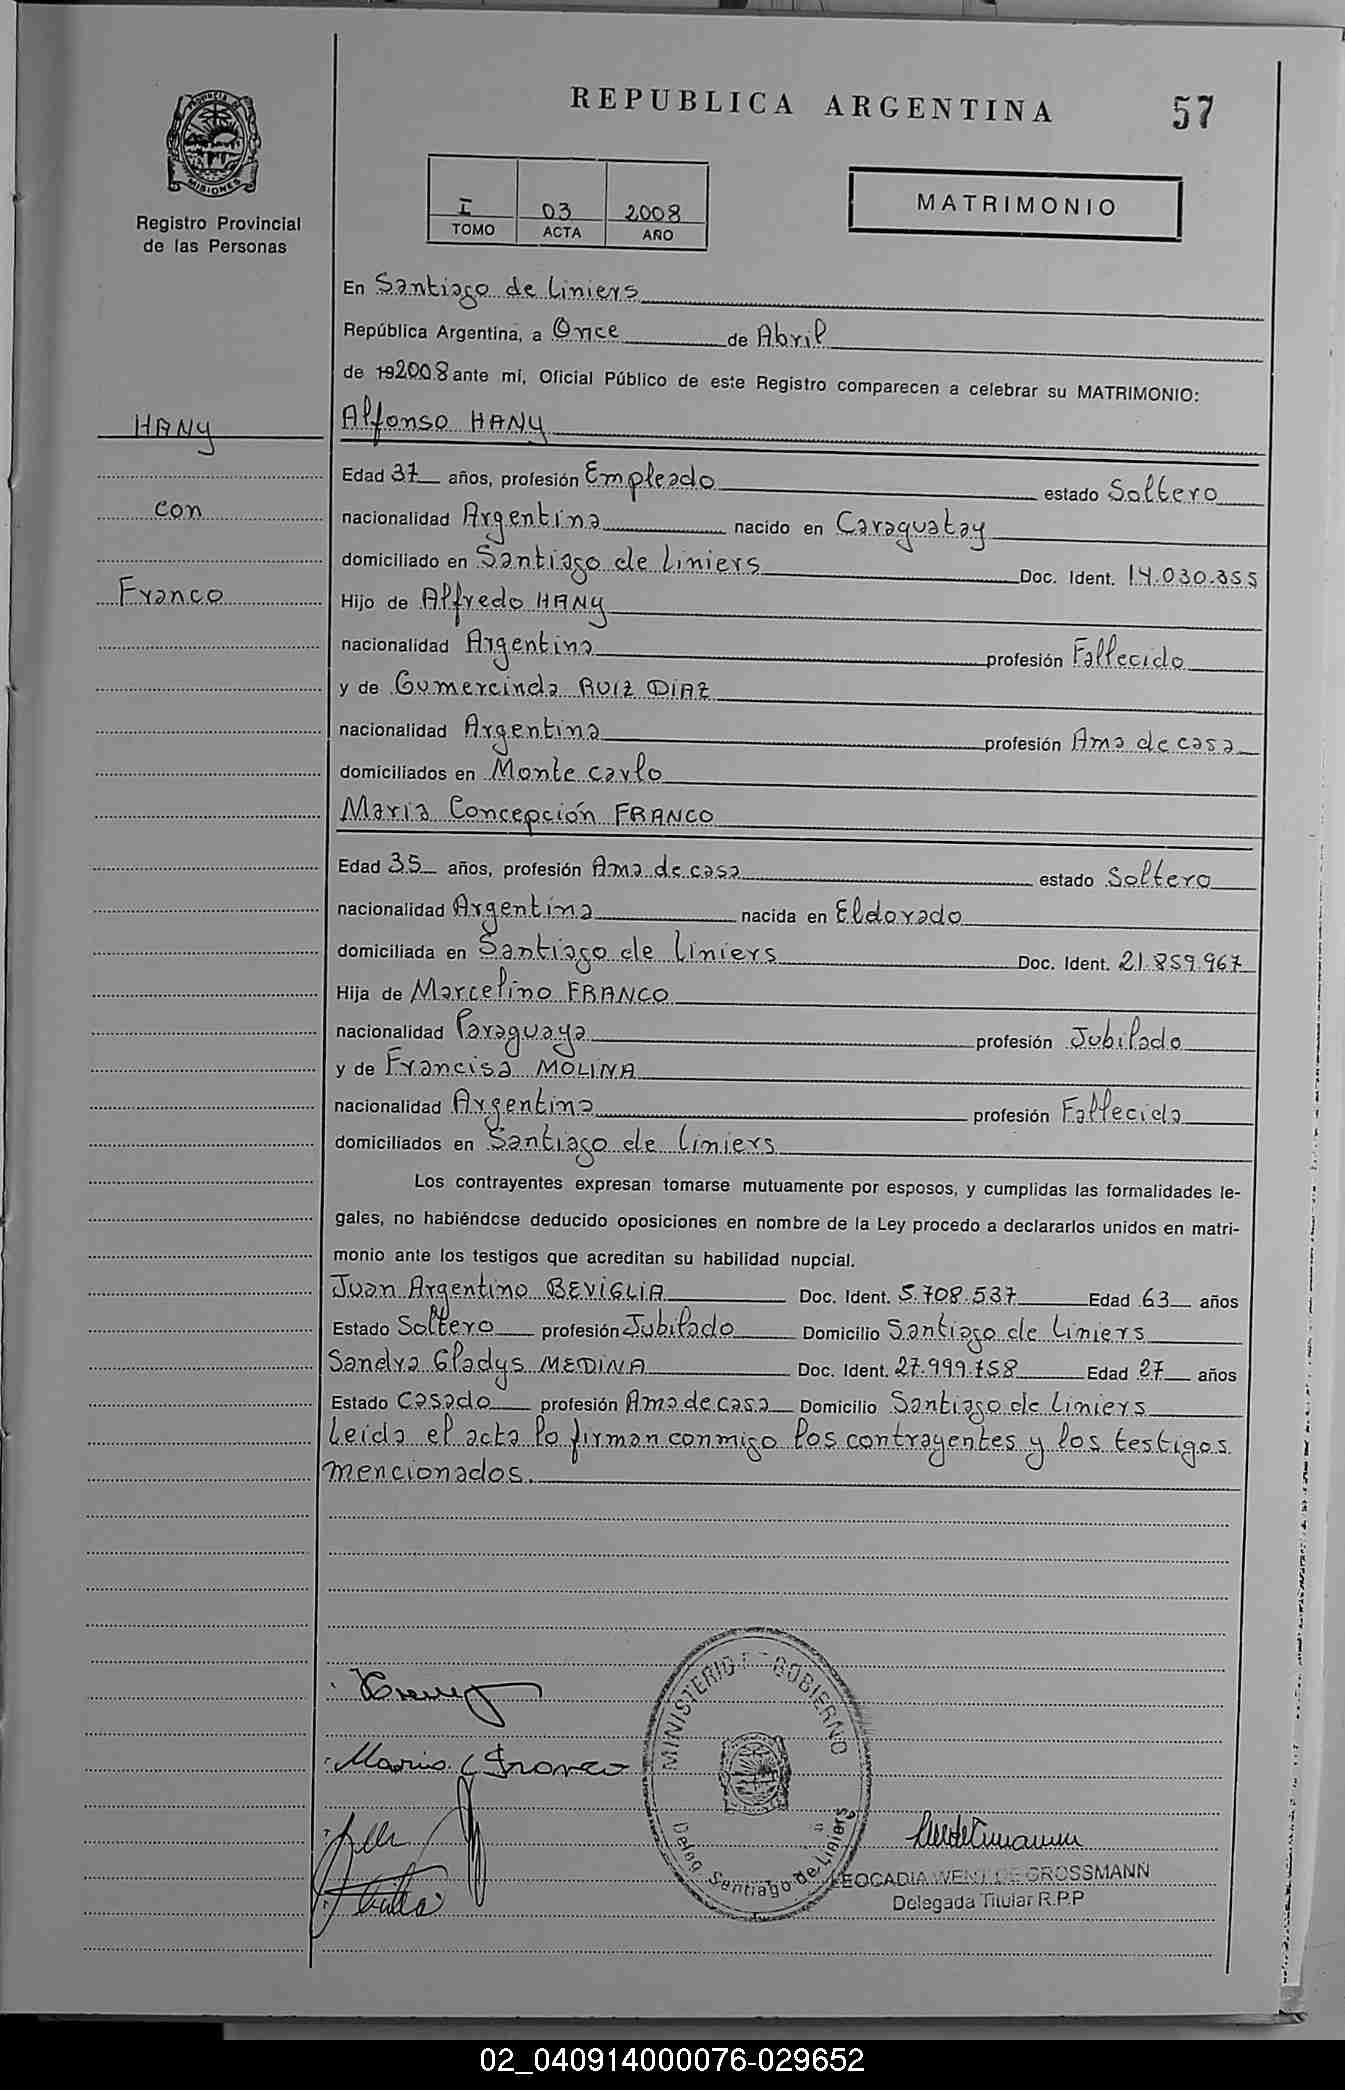 REPUBLICA ARGENTINA
57
PROVINCIA DE
MISIONES
Registro Provincial
de las Personas
I 03 2008
TOMO ACTA AÑO
MATRIMONIO
En Santiago de Liniers
República Argentina, a Once de Abril
de 192008 ante mí, Oficial Público de este Registro comparecen a celebrar su MATRIMONIO:
HANY
con
Franco
Alfonso HANY
Edad 37 años, profesión Empleado estado Soltero
nacionalidad Argentina nacido en Caraguatay
domiciliado en Santiago de Liniers Doc. Ident. 14.030.355
Hijo de Alfredo HANY
nacionalidad Argentina profesión Fallecido
y de Gumercinda RUIZ DIAZ
nacionalidad Argentina profesión Ama de casa
domiciliados en Monte carlo
Maria Concepción FRANCO
Edad 35 años, profesión Ama de casa estado Soltero
nacionalidad Argentina nacida en Eldorado
domiciliada en Santiago de Liniers Doc. Ident. 21.859.967
Hija de Marcelino FRANCO
nacionalidad Paraguaya profesión Jubilado
y de Francisa MOLINA
nacionalidad Argentina profesión Fallecida
domiciliados en Santiago de Liniers
Los contrayentes expresan tomarse mutuamente por esposos, y cumplidas las formalidades le-
gales, no habiéndose deducido oposiciones en nombre de la Ley procedo a declararlos unidos en matri-
monio ante los testigos que acreditan su habilidad nupcial.
Juan Argentino BEVIGLIA Doc. Ident. 5.708.537 Edad 63 años
Estado Soltero profesión Jubilado Domicilio Santiago de Liniers
Sandra Gladys MEDINA Doc. Ident. 27.999.758 Edad 27 años
Estado Casado profesión Ama de casa Domicilio Santiago de Liniers
Leida el acta lo firman conmigo los contrayentes y los testigos
mencionados.
Maria C Franco
MINISTERIO DE GOBIERNO
Deleg. Santiago de Liniers
LEOCADIA WENT DE GROSSMANN
Delegada Titular R.P.P
02_040914000076-029652